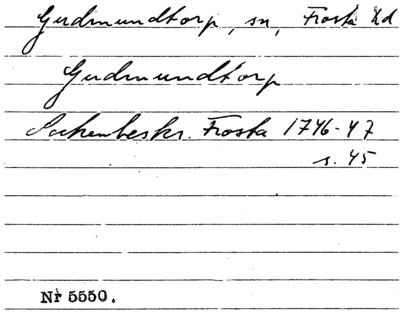 Gudmundtorp, sn, Frosta hd
Gudmundtorp
Sockenbeskr. Frosta 1746-47
s. 45
Nr 5550.